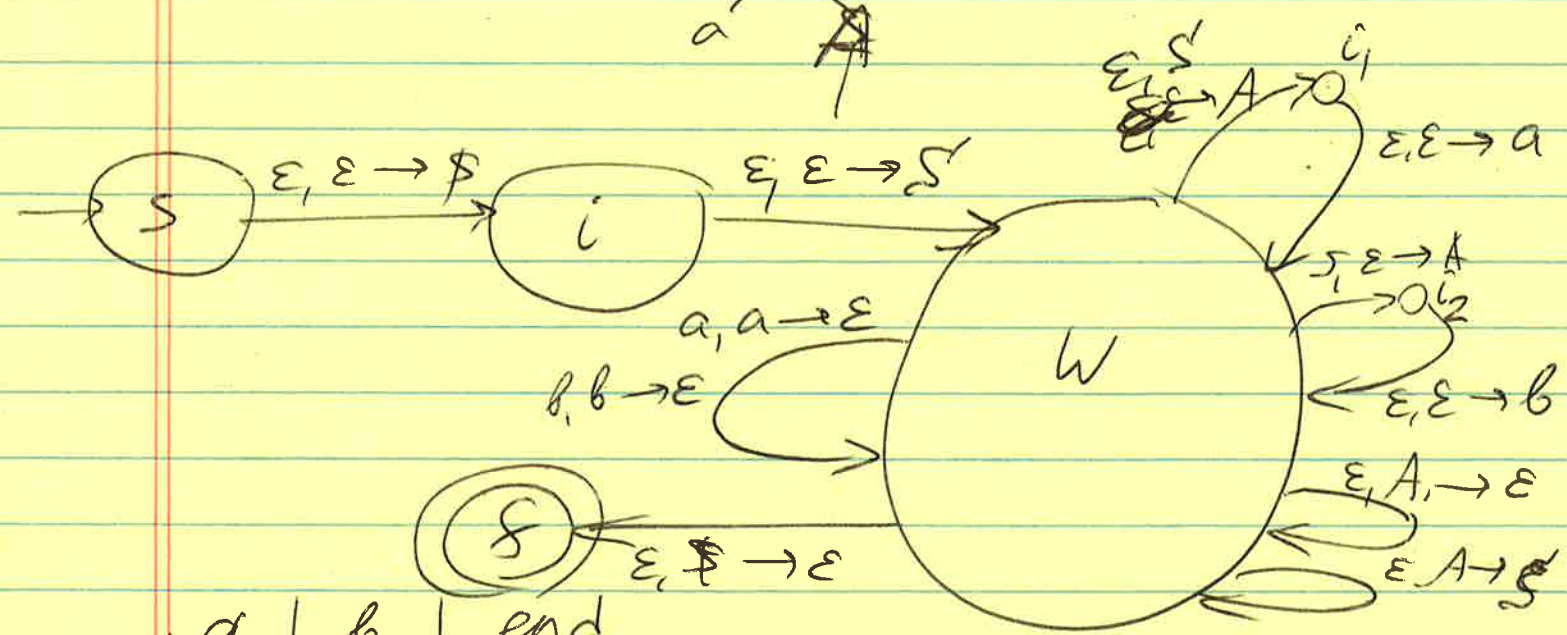 a A
ε, S → A i₁
ε, ε → a
S ε, ε → $ i ε, ε → S
S, ε → A i₂
a, a → ε W
b, b → ε ε, ε → b
ε, A, → ε
f ε, $ → ε ε A → S
a | b | end